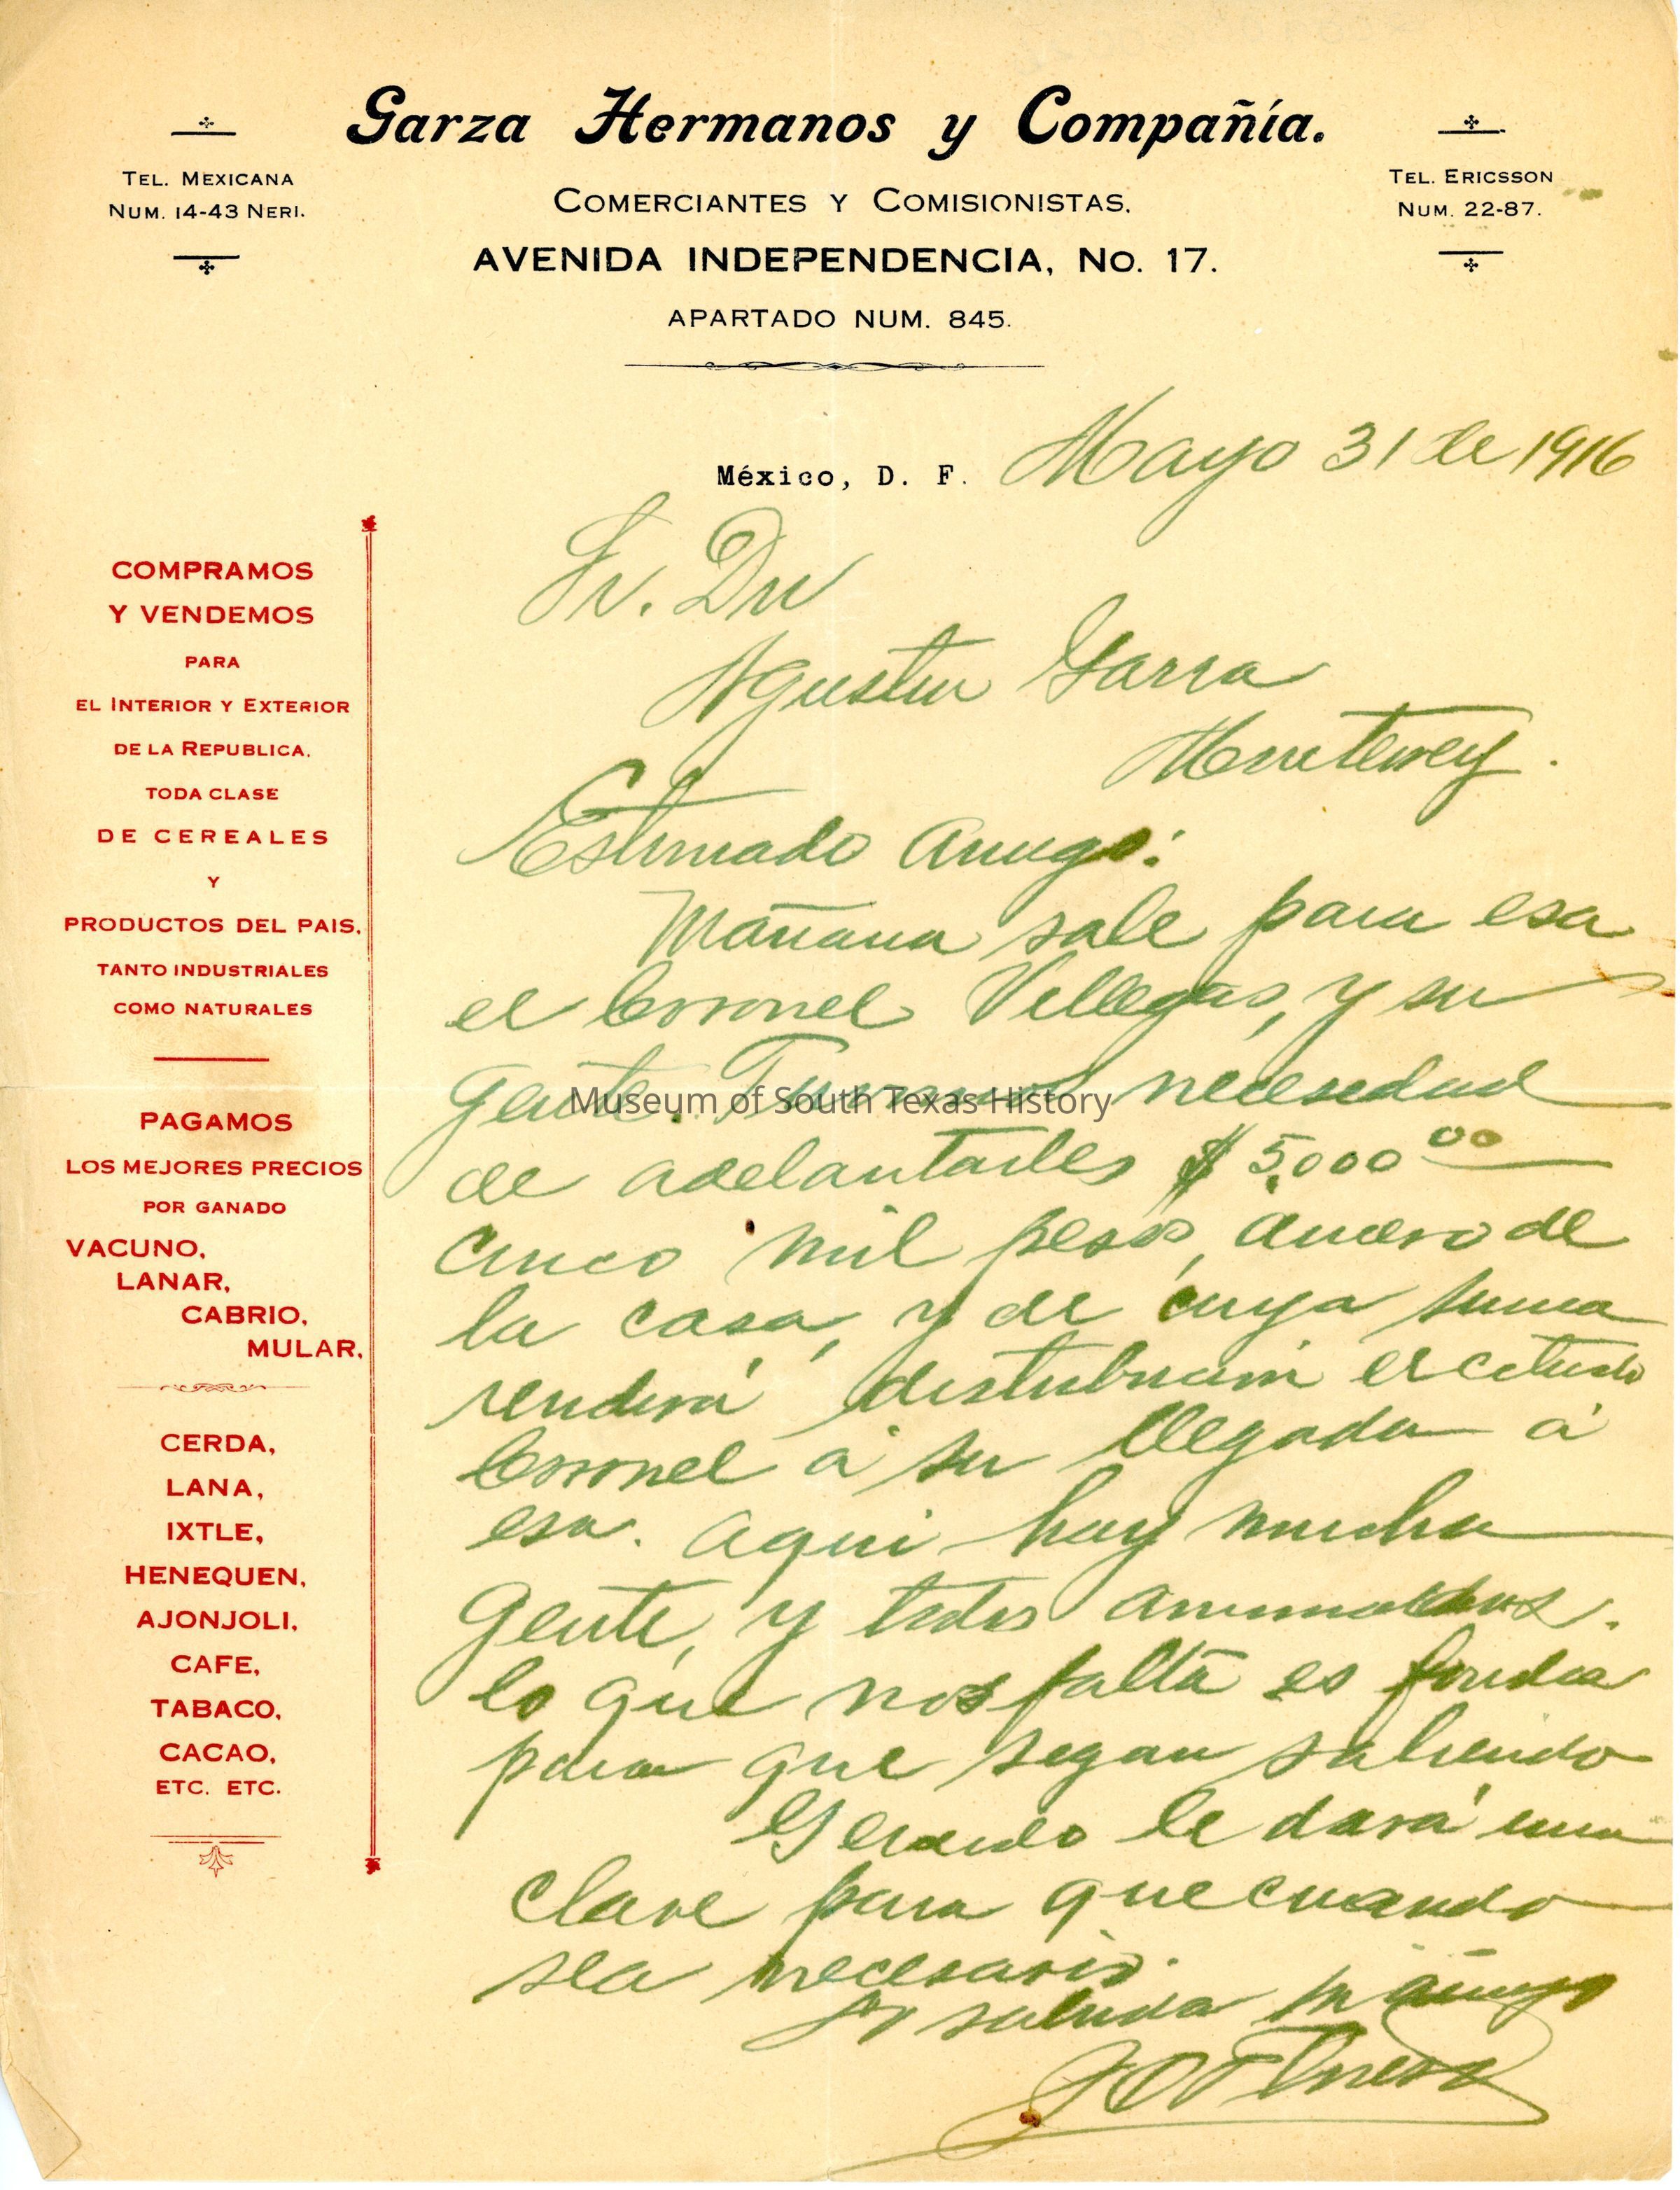 Garza Hermanos y Compañía.
TEL. MEXICANA
NUM. 14-43 NERI.
TEL. ERICSSON
NUM. 22-87.
COMERCIANTES Y COMISIONISTAS.
AVENIDA INDEPENDENCIA, No. 17.
APARTADO NUM. 845.
México, D. F. Mayo 31 de 1916
COMPRAMOS
Y VENDEMOS
PARA
EL INTERIOR Y EXTERIOR
DE LA REPUBLICA.
TODA CLASE
DE CEREALES
Y
PRODUCTOS DEL PAIS,
TANTO INDUSTRIALES
COMO NATURALES
PAGAMOS
LOS MEJORES PRECIOS
POR GANADO
VACUNO,
LANAR,
CABRIO,
MULAR,
CERDA,
LANA,
IXTLE,
HENEQUEN,
AJONJOLI,
CAFE,
TABACO,
CACAO,
ETC. ETC.
Sr. Dn
Agustin Garza
Monterrey.
Estimado amigo:
Mañana sale para esa
el Coronel Villegas, y su
gente. necesidad
de adelantarles $ 5,000 00
cinco mil pesos, dinero de
la casa, y de cuya suma
rendirá distribucion el citado
Coronel á su llegada á
esa. aqui hay mucha
gente, y todos animados.
lo que nos falta es fondos
para que sigan saliendo
Gerardo le dará una
clave para que cuando
sea necesario.
saluda su amigo
Museum of South Texas History